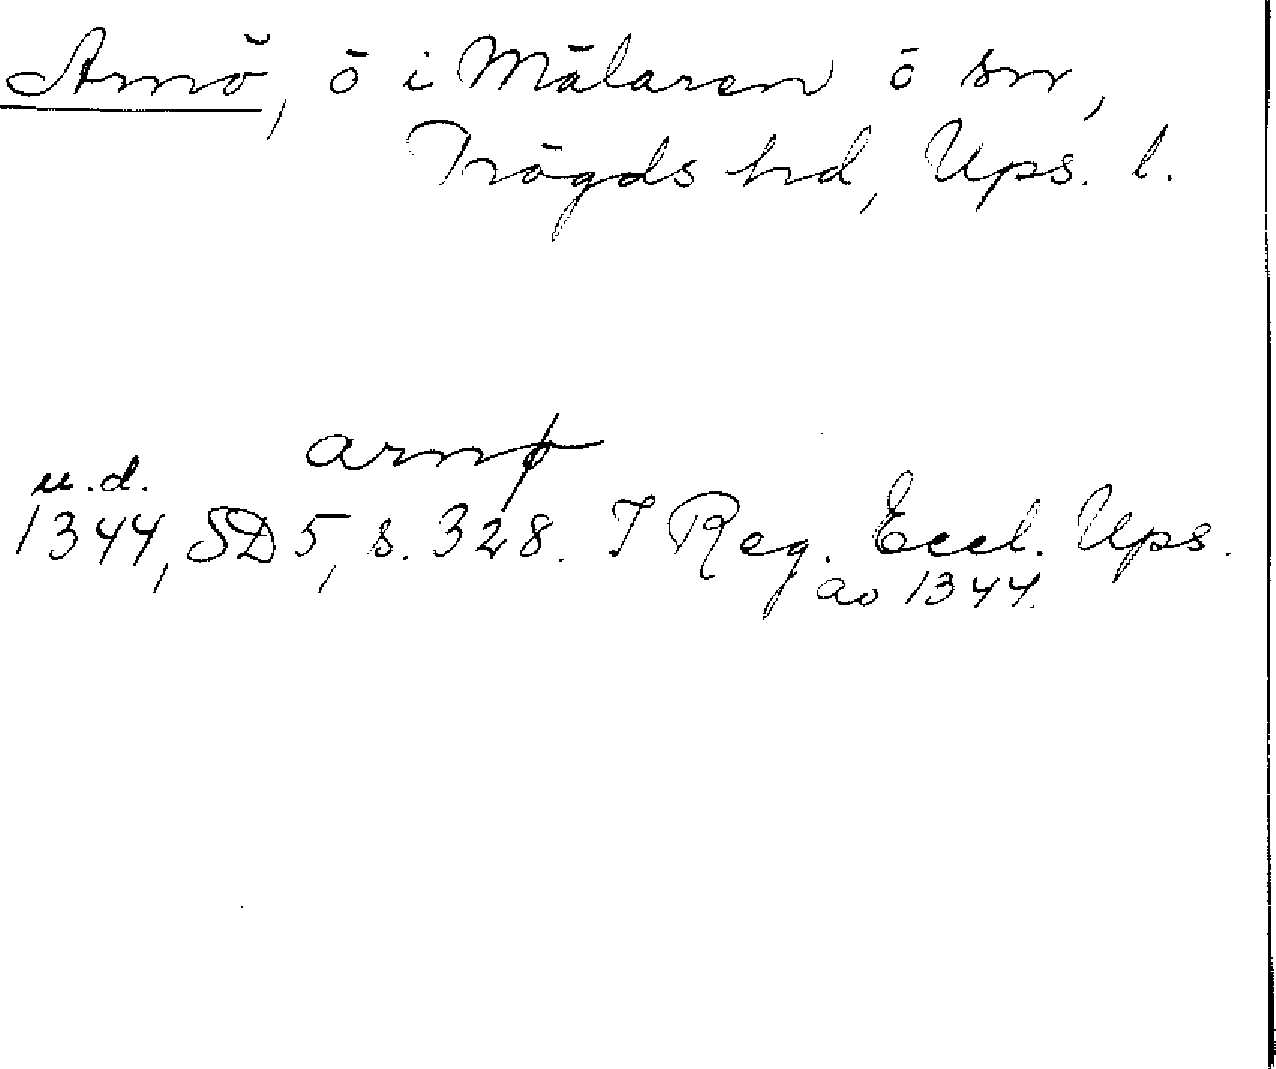 Arnö, ö i Mälaren ö sn,
Trögds hd, Ups. l.
arnø
u.d.
1344, SD 5, s. 328. I Reg. Eccl. Ups.
ao 1344.